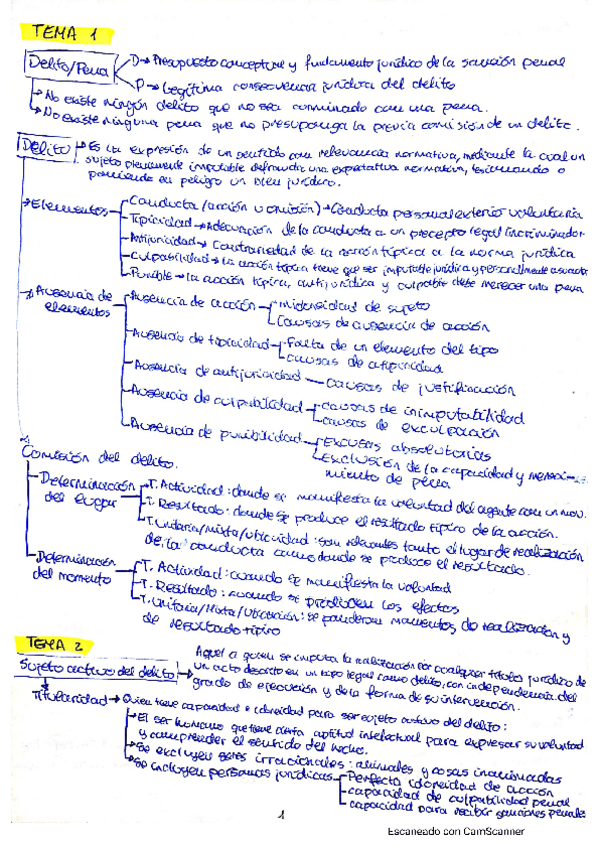 TEMA 1
Delito/Pena
D→ Presupuesto conceptual y fundamento jurídico de la sanción penal
P→ Legítima consecuencia jurídica del delito
→ No existe ningún delito que no sea conminado con una pena.
→ No existe ninguna pena que no presuponga la previa comisión de un delito.
Delito → Es la expresión de un sentido con relevancia normativa, mediante la cual un
sujeto plenamente imputable defrauda una expectativa normativa, lesionando o
poniendo en peligro un bien jurídico.
→ Elementos
Conducta (acción u omisión) → Conducta personal exterior voluntaria
Tipicidad → Adecuación de la conducta a un precepto legal incriminador
Antijuricidad → Contrariedad de la acción típica a la norma jurídica
Culpabilidad → la acción típica tiene que ser imputable jurídica y personalmente a su autor
Punible → la acción típica, antijurídica y culpable debe merecer una pena
→ Ausencia de elementos
Ausencia de acción
inidoneidad de sujeto
Causas de ausencia de acción
Ausencia de tipicidad
Falta de un elemento del tipo
causas de atipicidad
Ausencia de antijuricidad — causas de justificación
Ausencia de culpabilidad
causas de inimputabilidad
causas de exculpación
Ausencia de punibilidad
Excusas absolutorias
Exclusión de la capacidad y mereci-
miento de pena
Comisión del delito.
Determinación del lugar
T. Actividad: donde se manifiesta la voluntad del agente con un mov.
T. Resultado: donde se produce el resultado típico de la acción.
T. Unitaria/mixta/ubicuidad: son relevantes tanto el lugar de realización
de la conducta como donde se produce el resultado.
Determinación del momento
T. Actividad: cuando se manifiesta la voluntad
T. Resultado: cuando se producen los efectos
T. Unitaria/Mixta/Ubicuación: se ponderan momentos de realización y
de resultado típico
TEMA 2
Sujeto activo del delito →
Aquel a quien se imputa la realización por cualquier título jurídico de
un acto descrito en un tipo legal como delito, con independencia del
grado de ejecución y de la forma de su intervención.
Titularidad → Quien tiene capacidad e idoneidad para ser sujeto activo del delito:
→ El ser humano que tiene cierta aptitud intelectual para expresar su voluntad
y comprender el sentido del hecho.
→ Se excluyen seres irracionales: animales y cosas inanimadas
→ Se incluyen personas jurídicas
Perfecta idoneidad de acción
capacidad de culpabilidad penal
capacidad para recibir sanciones penales
1
Escaneado con CamScanner